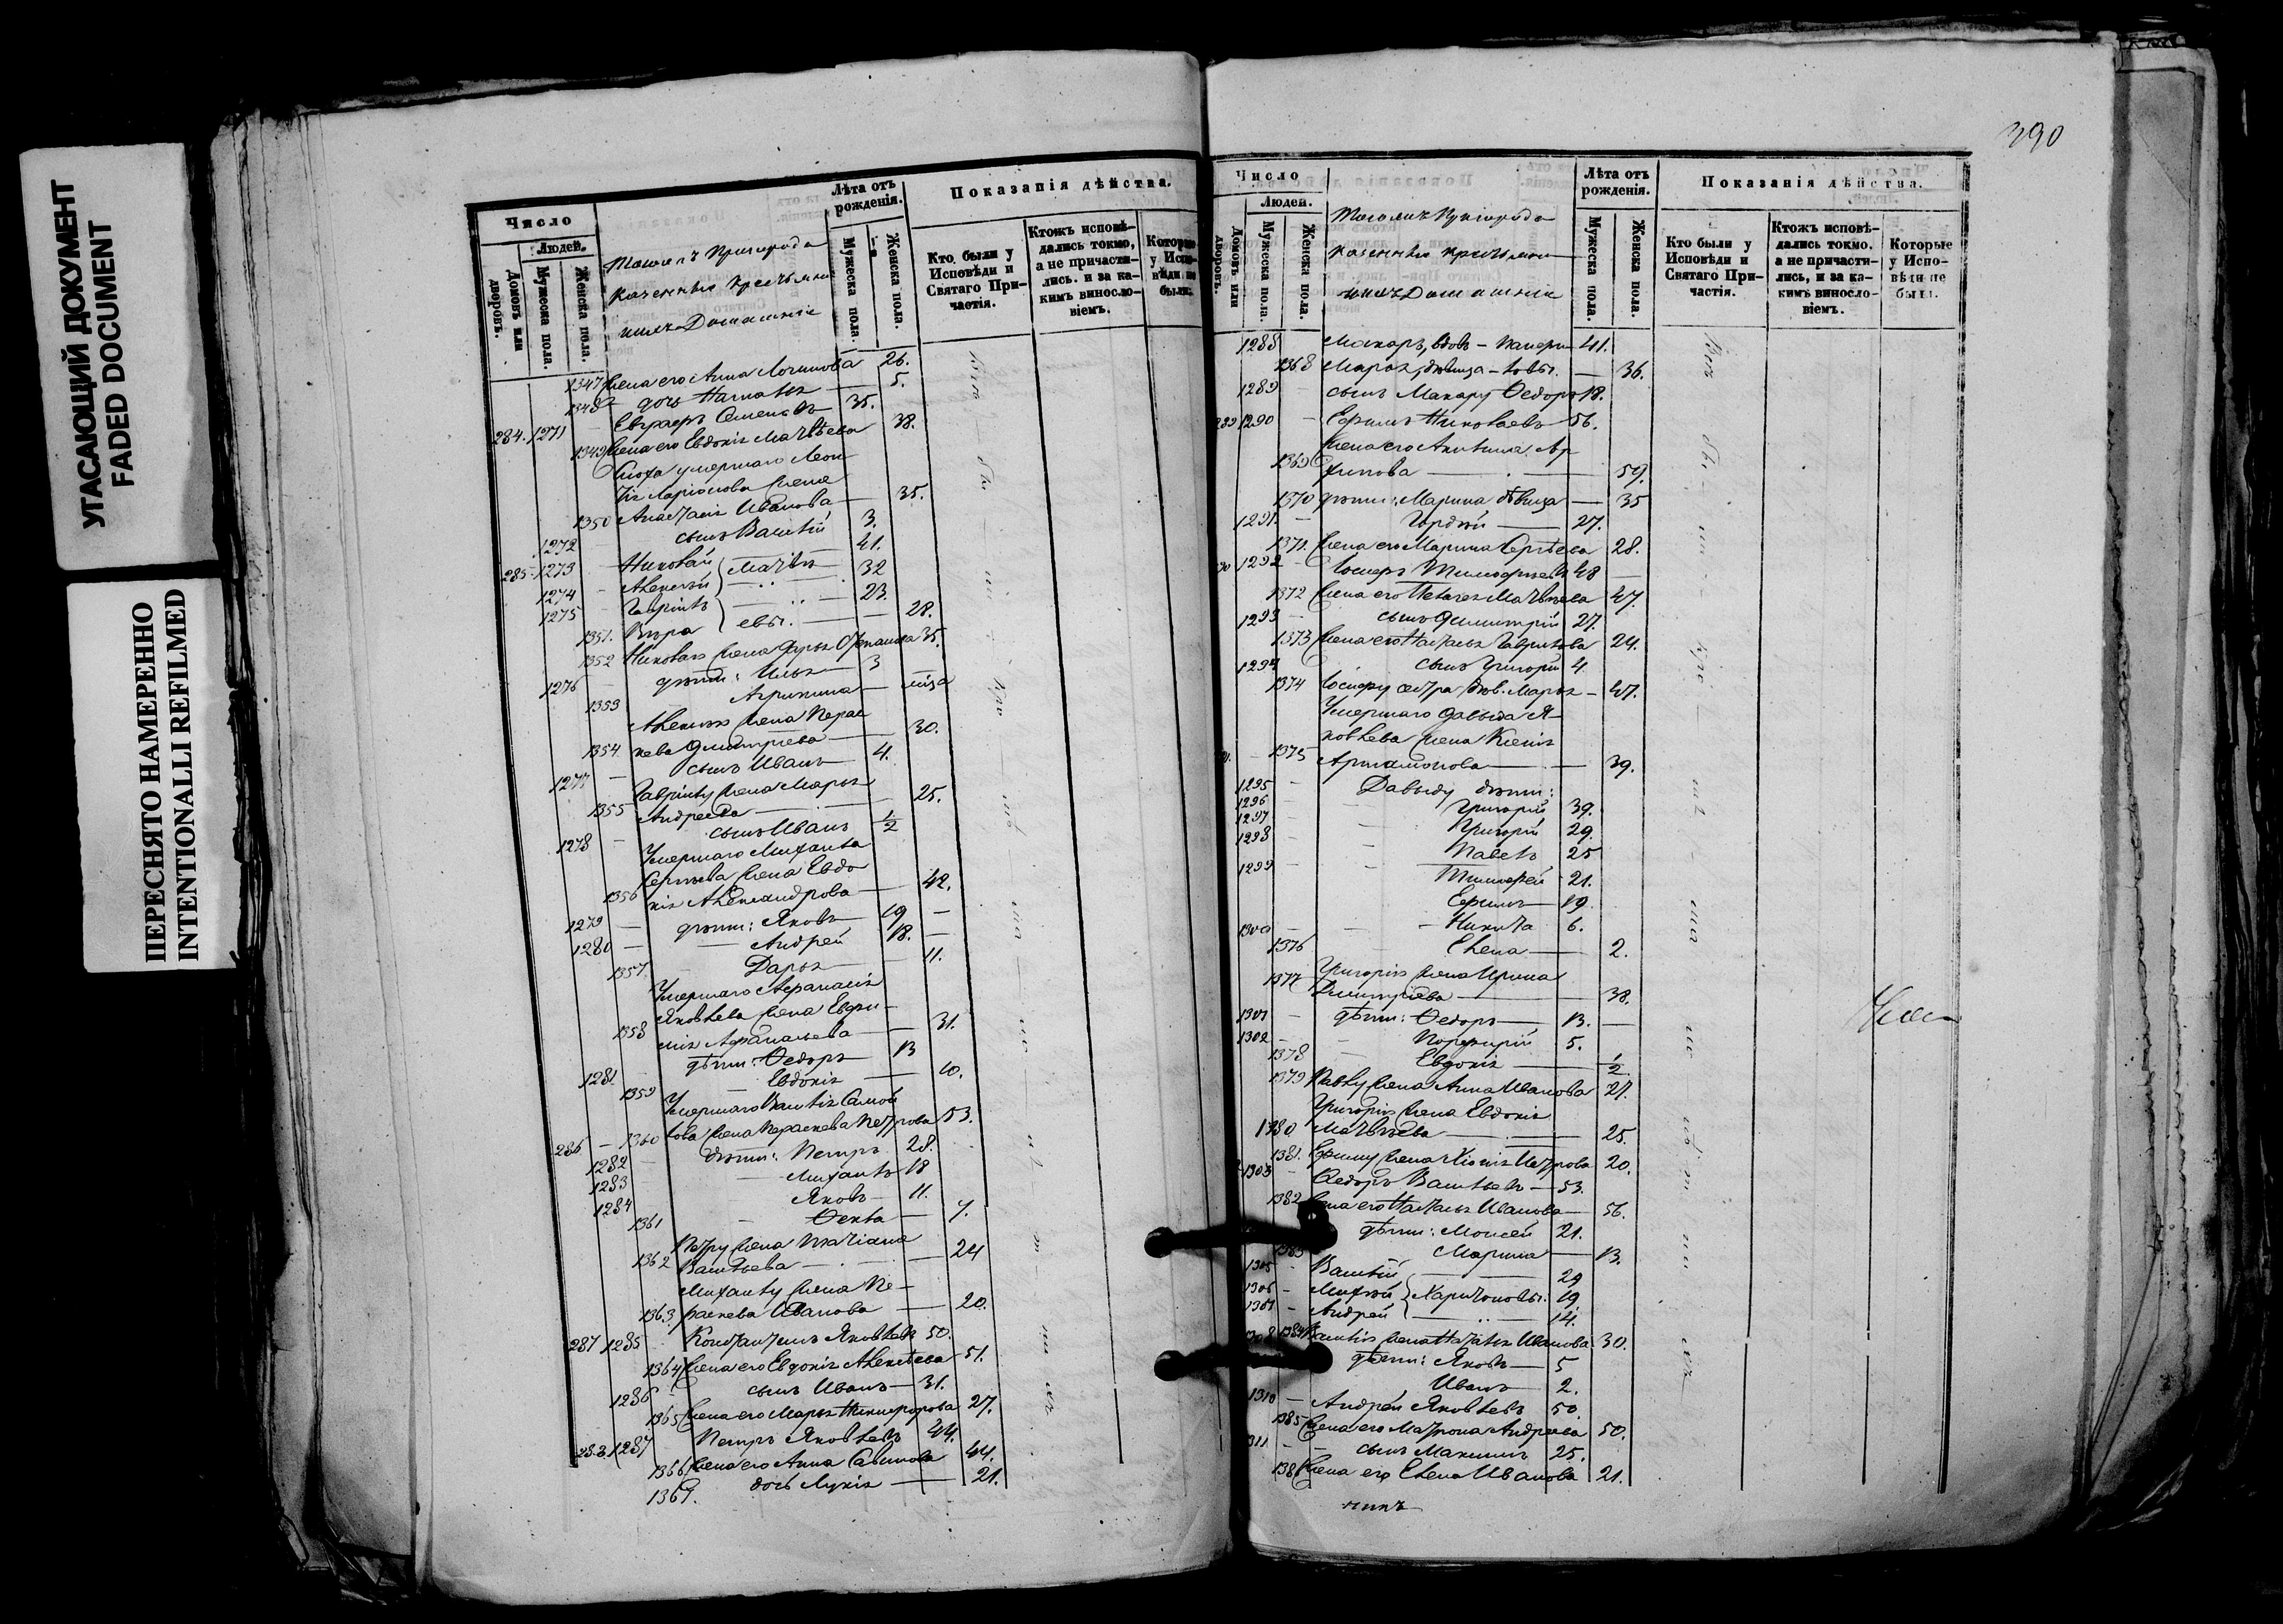 УГАСАЮЩИЙ ДОКУМЕНТ
FADED DOCUMENT
ПЕРЕСНЯТО НАМЕРЕННО
INTENTIONALLI REFILMED
Число
Людей.
Домовъ или дворовъ.
Мужеска пола.
Женска пола.
казенные
ихъ Домашніе
Лѣта отъ рожденія.
Мужеска пола.
Женска пола.
Показанія дѣйства.
Кто были у Исповѣди и Святаго Причастія.
Ктожъ исповѣдались токмо, а не причастились, и за какимъ винословіемъ.
Которые у Исповѣди не были.
1347 Жена его Анна Логинова 26.
1348 дочь Наталья 5.
284. 1271 Евграфъ Семеновъ 35.
1349 Жена его Евдокія Матвѣева 38.
умершаго Леон-
тія Ларіонова жена
1350 Анастасія Иванова 35.
1272 сынъ Василій 3.
285. 1273 Николай 41.
1274 Алексѣй Матвѣ- 32
1275 Гаврилъ 23.
1351. Вѣра евы. 28.
1352 Николая жена Дарья Степанова 35.
1276 дѣти: Илья 3
1353 Агрипина
Алексѣя жена Парас-
1354 кева Дмитріева 30.
1277 сынъ Иванъ 4.
Гаврилу жена Марья
1355 Андреева 25.
1278 сынъ Иванъ 1/2
Умершаго Михаила
Сергѣева жена Евдо-
1356 кія Александрова 42.
1279 дѣти: Яковъ 19
1280 Андрей 18.
1357. Дарья 11.
Умершаго Афанасія
Яковлева жена Евфи-
1358 мія Афанасьева 31.
1281 дѣти: Ѳедоръ 13
1359 Евдокія 10.
Умершаго Василія Самой-
286 1360 лова жена Параскева Петрова 53.
1282 дѣти: Петръ 28.
1283 Михаилъ 18
1284 Яковъ 11.
1361 Ѳекла 7.
Петру жена Татіана
1362 Васильева 24
Михаилу жена Па-
1363. раскева Иванова 20.
287 1285 Константинъ Яковлевъ 50.
1364 Жена его Евдокія Алексѣева 51.
1286 сынъ Иванъ 31.
1365 Жена его Марья Никифорова 27.
288. 1287 Петръ Яковлевъ 44.
1366 Жена его Анна Савинова 44.
1367. дочь Лукія 21.
390
Число
Людей.
Домовъ или дворовъ.
Мужеска пола.
Женска пола.
казенные
ихъ Домашніе
Лѣта отъ рожденія.
Мужеска пола.
Женска пола.
Показанія дѣйства.
Кто были у Исповѣди и Святаго Причастія.
Ктожъ исповѣдались токмо. а не причастились, и за какимъ винословіемъ.
Которые у Исповѣди не были.
1288 Макаръ, вдовъ 41.
1368 Марья, дѣвица 36.
1289 сынъ Макару Ѳедоръ 18.
289 1290 Ефимъ Николаевъ 56.
Жена его Акилина Ар-
1369 хипова 59.
1370 дѣти: Марина дѣвица 35
1291. Гордѣй 27.
1371. Жена его Марина Сергѣева 28.
1292 Іосифъ Тимофѣевъ 48
1372 Жена его Пелагея Матвѣева 47.
1293 сынъ Димитрій 27.
1373 Жена его Наталья Гаврилова 24.
1294 сынъ Григорій 4.
1374 Іосифу сестра дѣв. Марья 47.
Умершаго Давыда Я-
ковлева жена Ксенія
1375 Артамонова 39.
1295 Давыду дѣти:
1296 Григорій 39.
1297 Григорій 29.
1298 Павелъ 25
1299 Тимофей 21.
Ефимъ 19.
1300 Никита 6.
1376 Елена 2.
Григорія жена Ирина
1377 Димитріева 38.
1301 дѣти: Ѳедоръ 13.
1302 Порфирій 5.
1378 Евдокія 1/2
1379 Павлу жена Анна Иванова 27.
Григорія жена Евдокія
1380 Матвѣева 25.
1381. Ефиму жена Ксенія Петрова 20.
1303 Ѳедоръ Васильевъ 53.
1382 Жена его Наталья Иванова 56.
дѣти: Моисей 21.
1383 Марина 13.
1305 Василій 29
1306 Михей Харитоновы. 19
1307 Андрей 14.
1308 1384 Василія жена Наталья Иванова 30.
дѣти: Яковъ 5
Иванъ 2.
1310 Андрей Яковлевъ 50.
1385 Жена его Матрона Андреева 50.
1311 сынъ Максимъ 25.
1386 Жена его Елена Иванова 21.